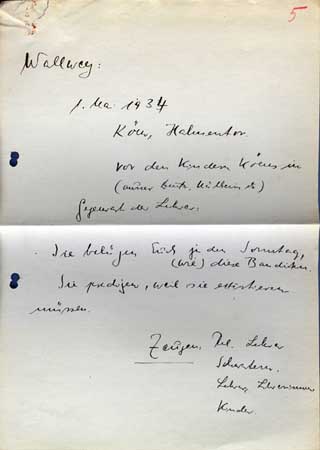 5
Wallwey:
1. Mai 1934
Köln, Hahnentor.
vor den Kindern Kölns in
(außer
Gegenwart der Lehrer.
Sie belügen Euch jeden Sonntag,
(wie) diese Banditen.
Sie predigen, weil sie existieren
müssen.
Zeugen. Rel. Lehrer
Schwestern.
Lehrer, Lehrerinnen
Kinder.